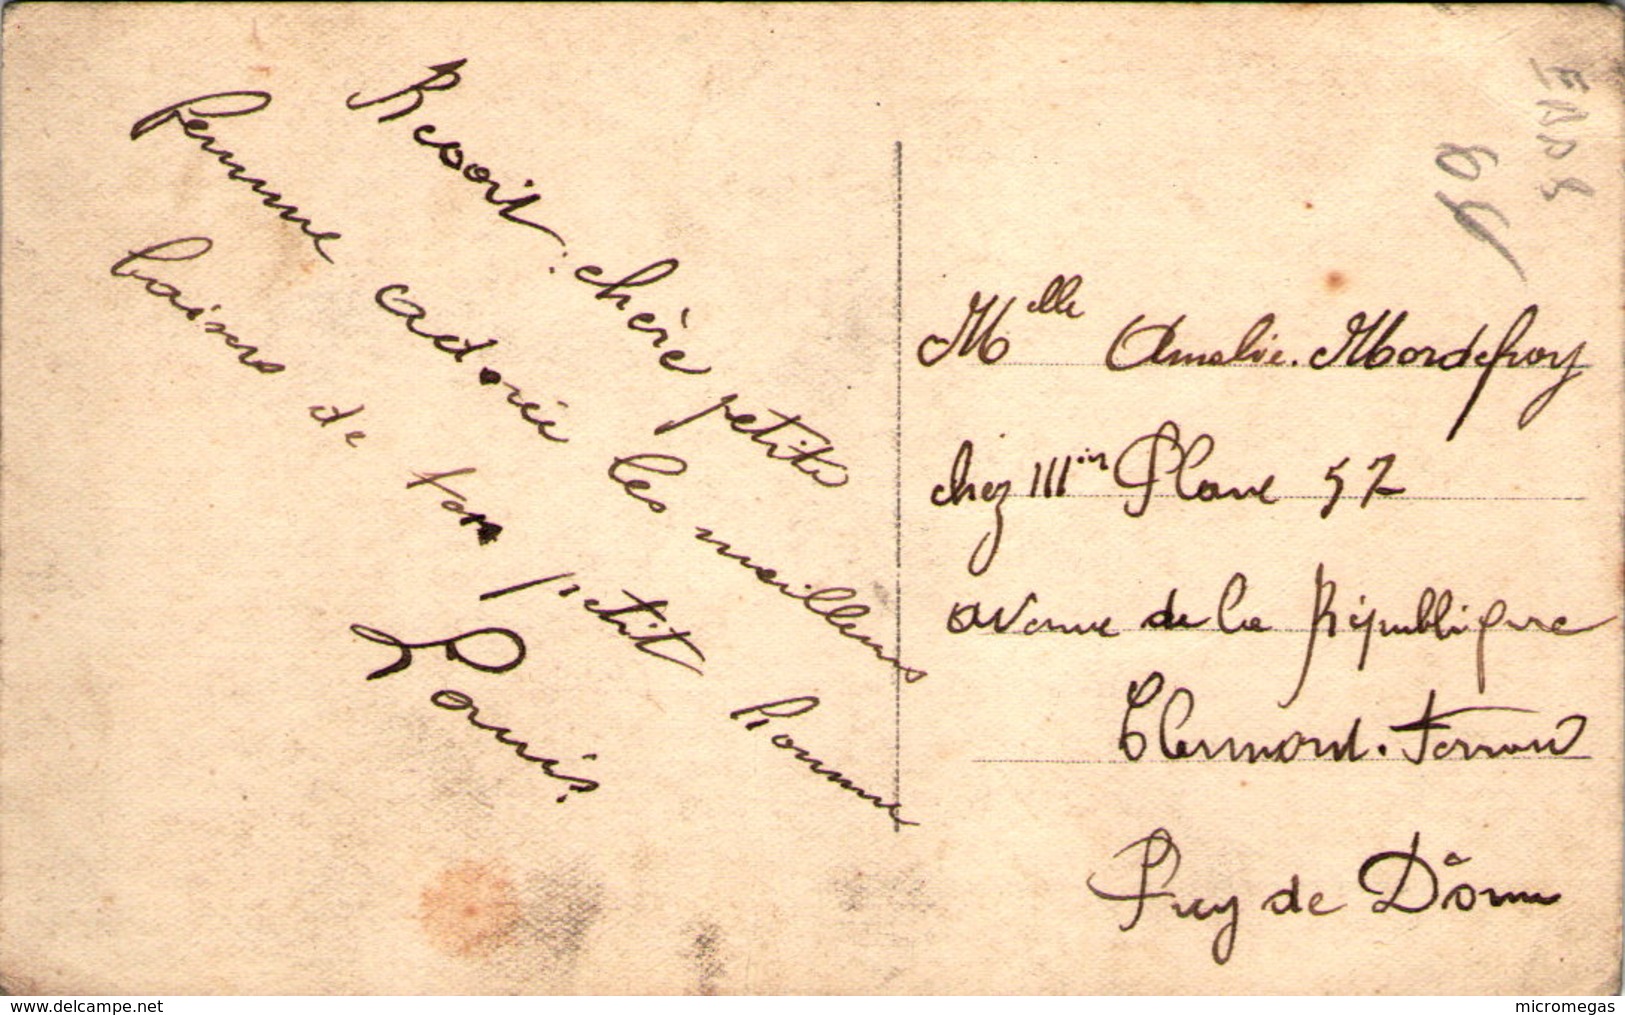 Recoit chère petite
femme adorée les meilleurs
baisers de ton petit homme
Louis
Melle Amelie Mordefroy
chez Min Plane 57
avenue de la République
Clermont-Ferrand
Puy de Dôme
64
delcampe.net
micromegas